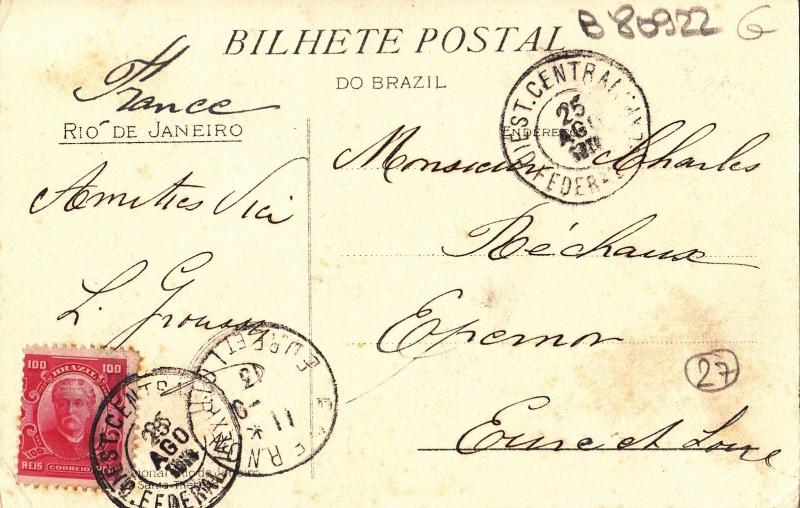 B 80922 G
BILHETE POSTAL
DO BRAZIL
France
RIO DE JANEIRO
ENDEREÇO
EST. CENTRAL
25
AGO
D. FEDERAL
Monsieur Charles
Réchaux
Epernon
Eure et Loire
Amitiés
L.
27
100 100
BRAZIL
REIS CORREIO
EST. CENTRAL
25
AGO
D. FEDERAL
EURE ET L
11
13
Rio de Janeiro